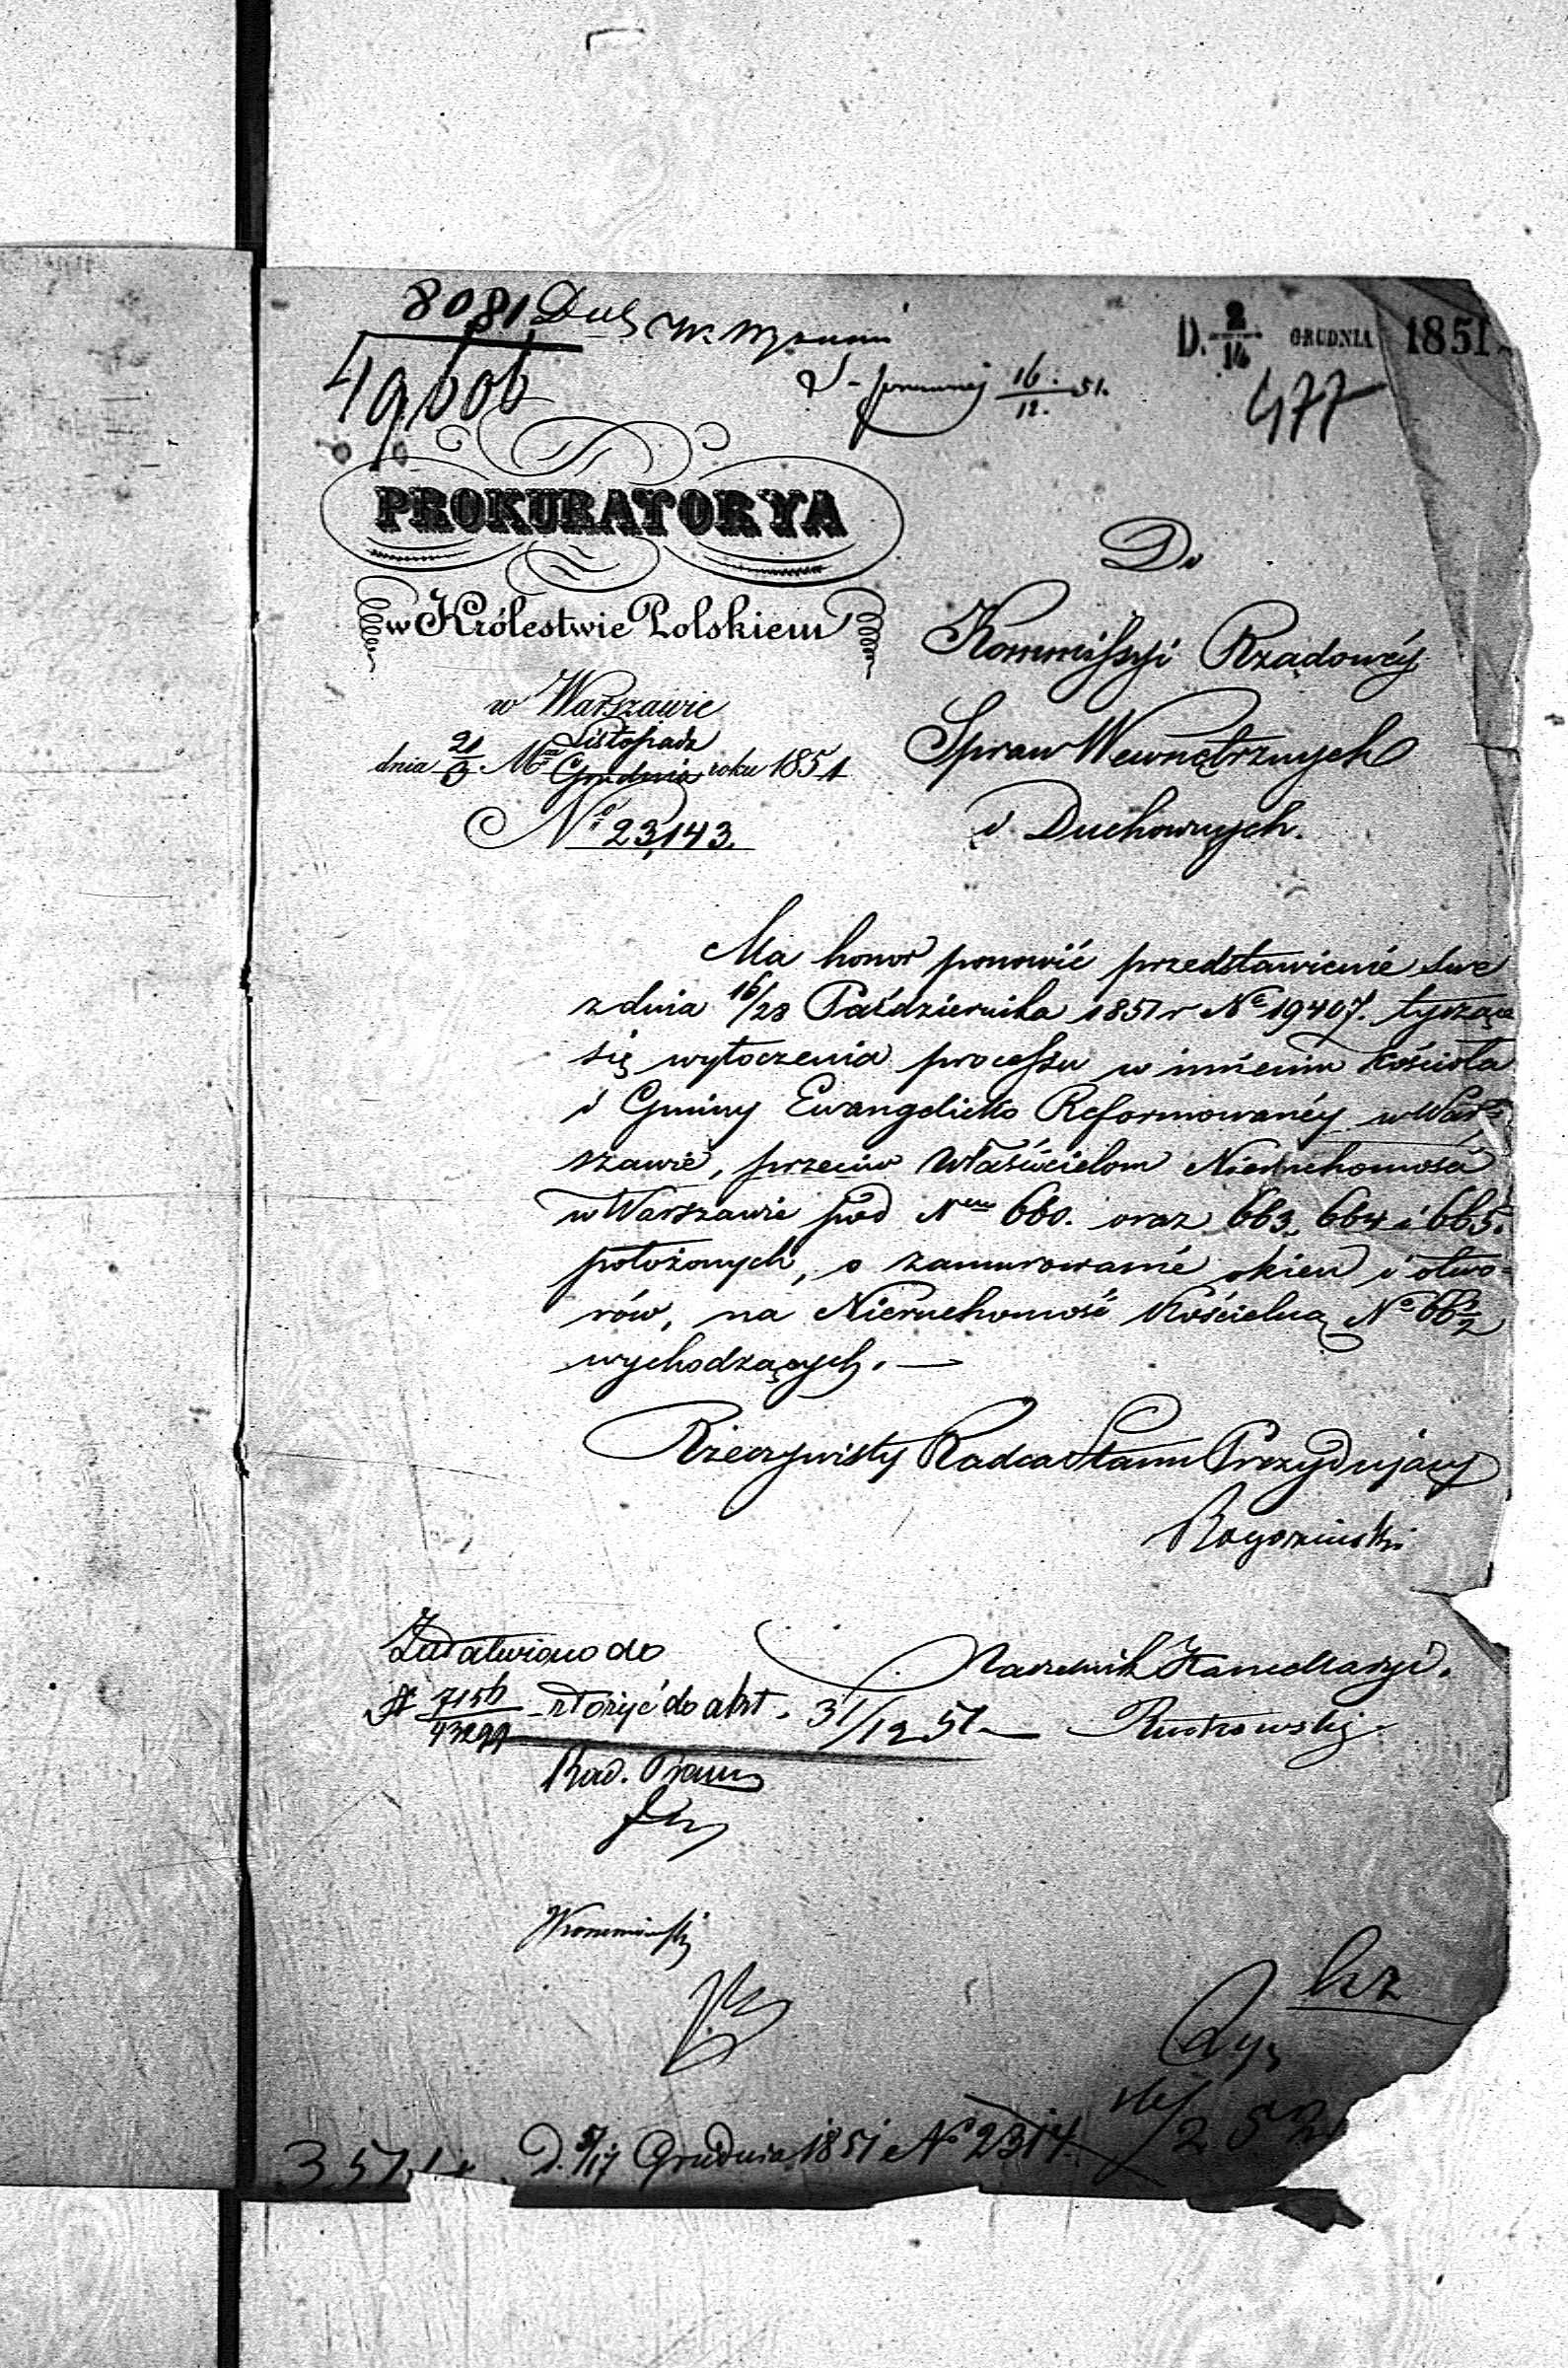 8081 Duch
49606
D. 2/14 GRUDNIA 1851
16/12. 51.
477
PROKURATORYA
w Królestwie Polskiem
w Warszawie
Listopada
dnia 21/3 Mca Grudnia roku 1851
No 23,143.
Do
Kommissyi Rządowéy
Spraw Wewnętrznych
i Duchownych.
Ma honor ponowić przedstawienie swe
z dnia 16/28 Października 1851 r No 19407. tyczące
się wytoczenia processu w imieniu Kościoła
i Gminy Ewangelicko Reformowanéy w War-
szawie, przeciw Właścicielom Nieruchomości
w Warszawie pod Nrem 660. oraz 663, 664 i 665.
położonych, o zamurowanie okien i otwo-
rów, na Nieruchomość Kościelną No 66½
wychodzących. —
Rzeczywisty Radca Stanu Prezydujący
Rogoziński
Naczelnik Kancellaryi.
Rutkowski
Załatwiono do
N 7156/43299 złożyć do akt. 31/12 51
Rad. Praw
kz
D. 5/17 Grudnia 1851 No 2314